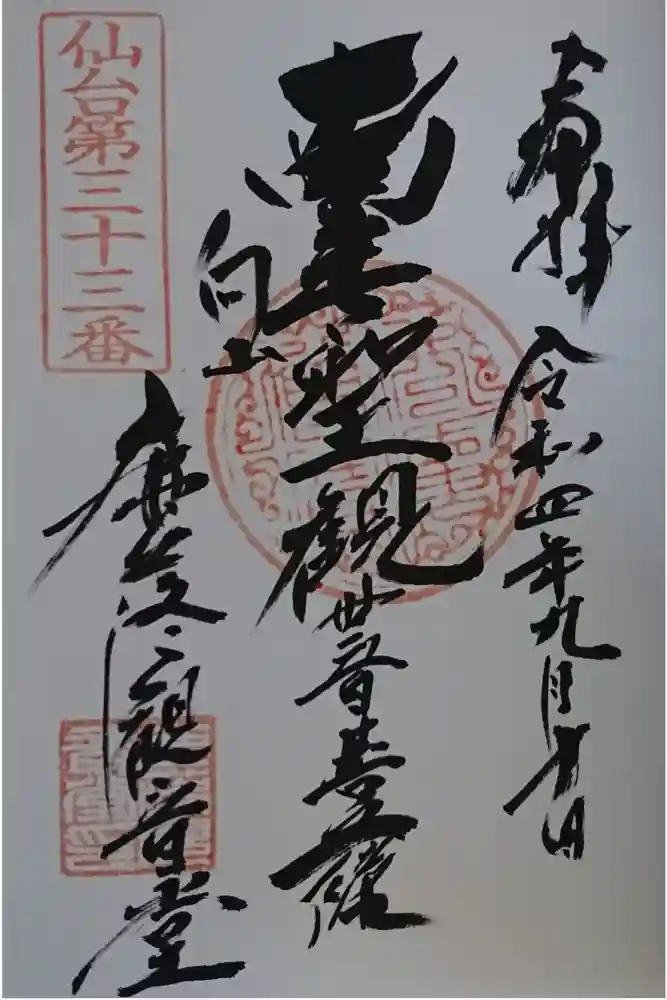 奉拝 令和四年九月
南無聖観世音菩薩
向山
鹿落観音堂
仙台第三十三番